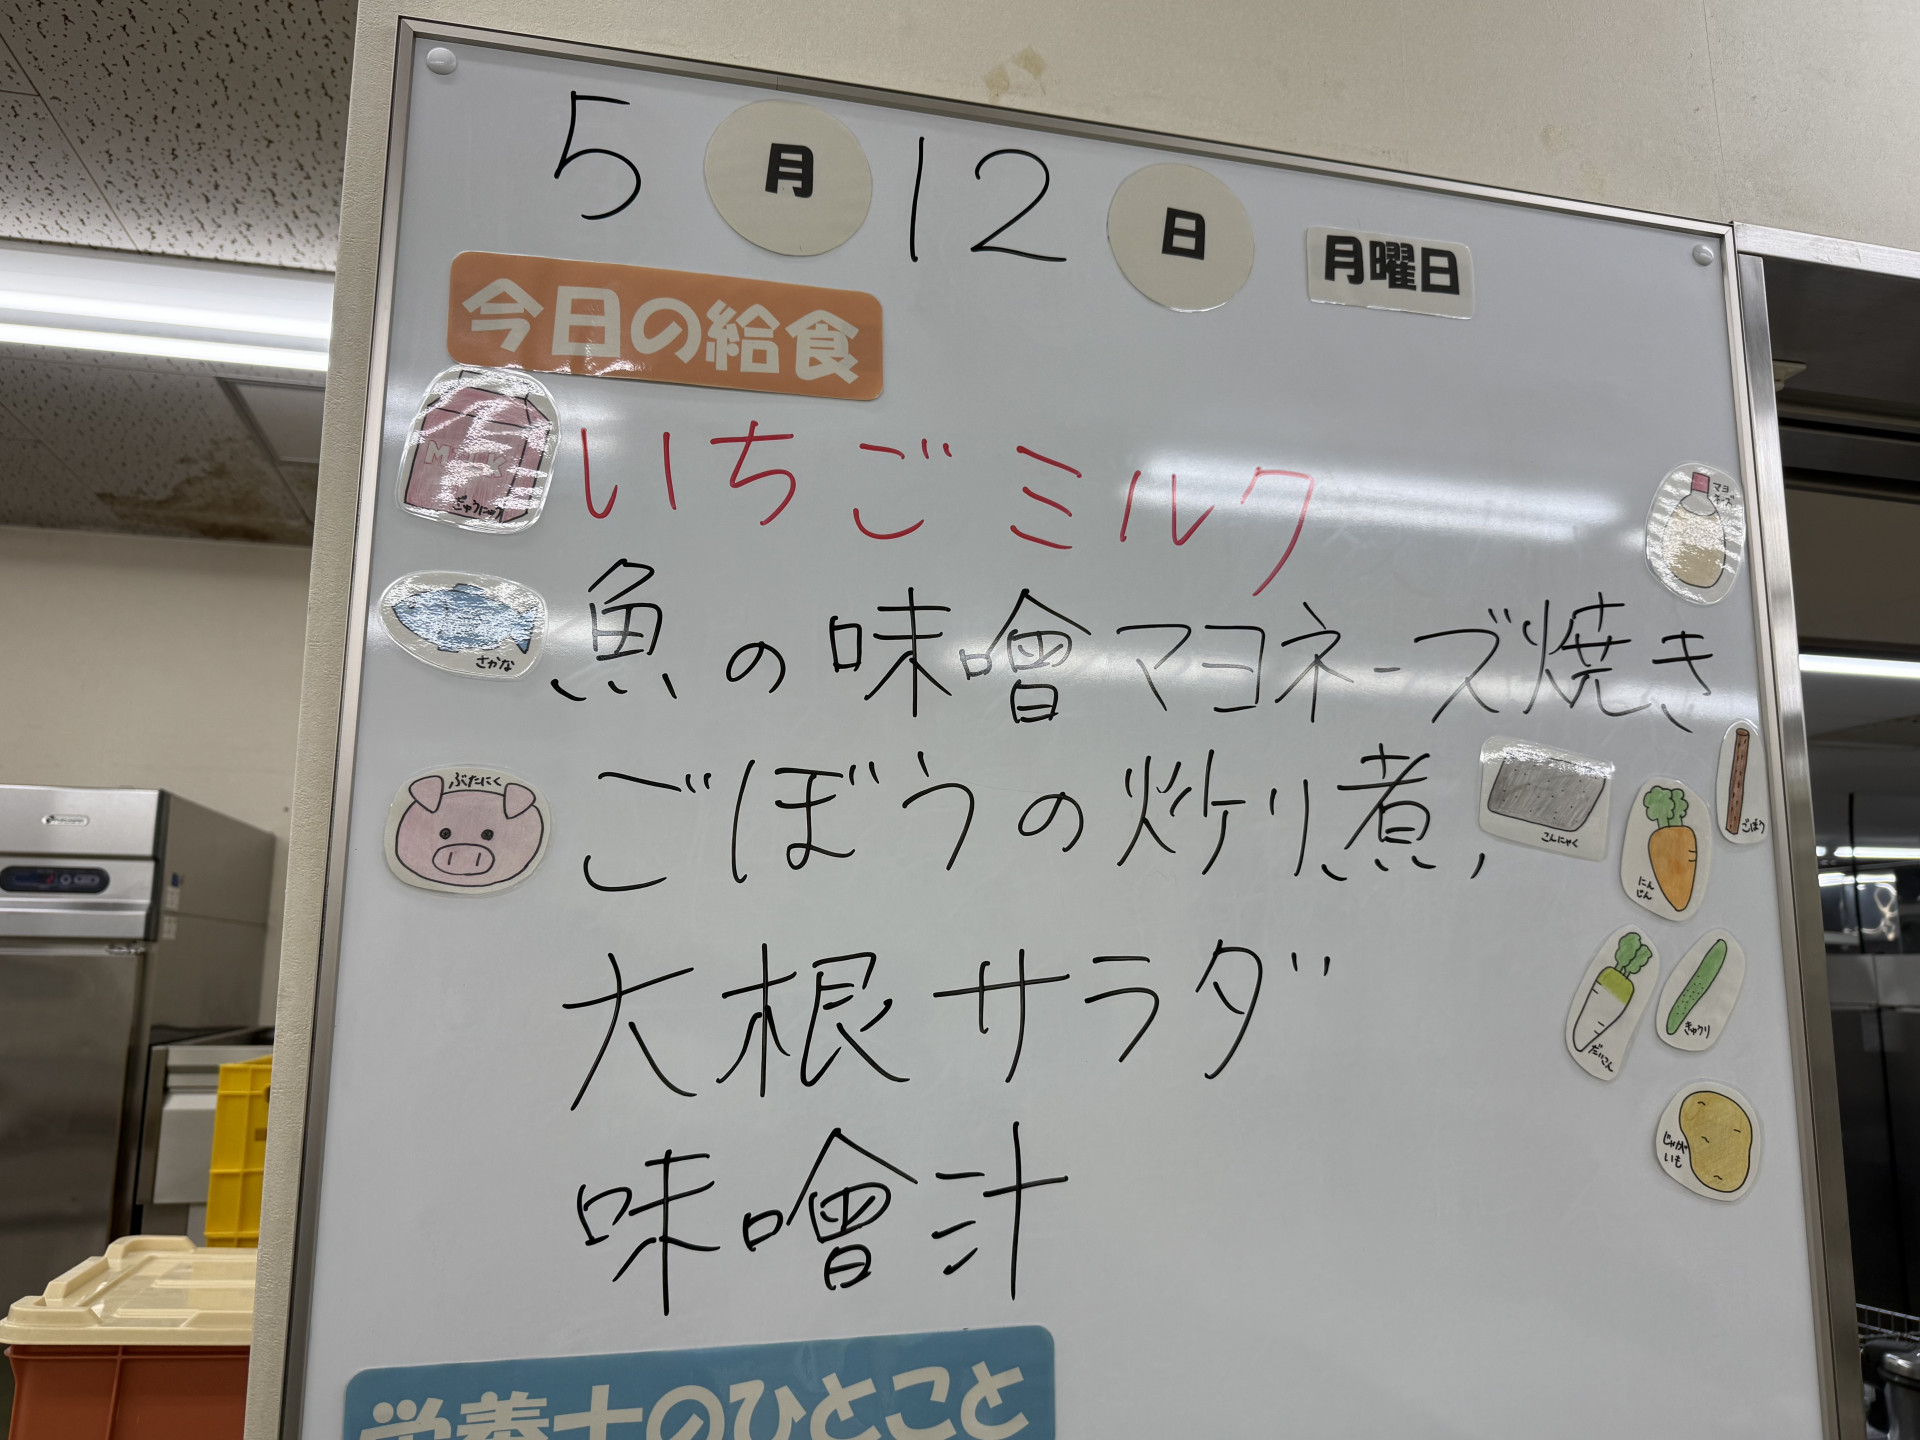 5月12日 月曜日
今日の給食
MILK
ぎゅうにゅう
いちごミルク
マヨネーズ
さかな
魚の味噌マヨネーズ焼き
ぶたにく
ごぼうの炒り煮,
こんにゃく
にんじん
ごぼう
大根サラダ
だいこん
きゅうり
じゃがいも
味噌汁
栄養士のひとこと